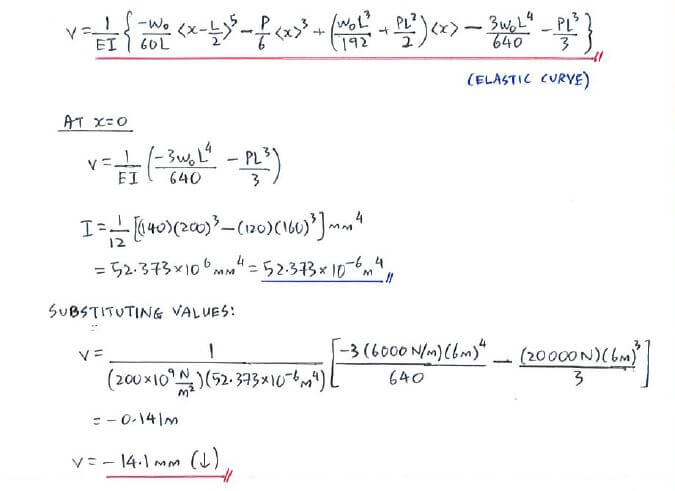 v = 1/EI { -w₀/60L <x - L/2>⁵ - P/6 <x>³ + (w₀L³/192 + PL²/2) <x> - 3w₀L⁴/640 - PL³/3 }
(ELASTIC CURVE)
AT x=0
v = 1/EI ( -3w₀L⁴/640 - PL³/3 )
I = 1/12 [(140)(200)³ - (120)(160)³] mm⁴
= 52.373 × 10⁶ mm⁴ = 52.373 × 10⁻⁶ m⁴
SUBSTITUTING VALUES:
v = 1/((200×10⁹ N/m²)(52.373×10⁻⁶ m⁴)) [ -3(6000 N/m)(6m)⁴/640 - (20000N)(6m)³/3 ]
= -0.141m
v = -14.1 mm (↓)